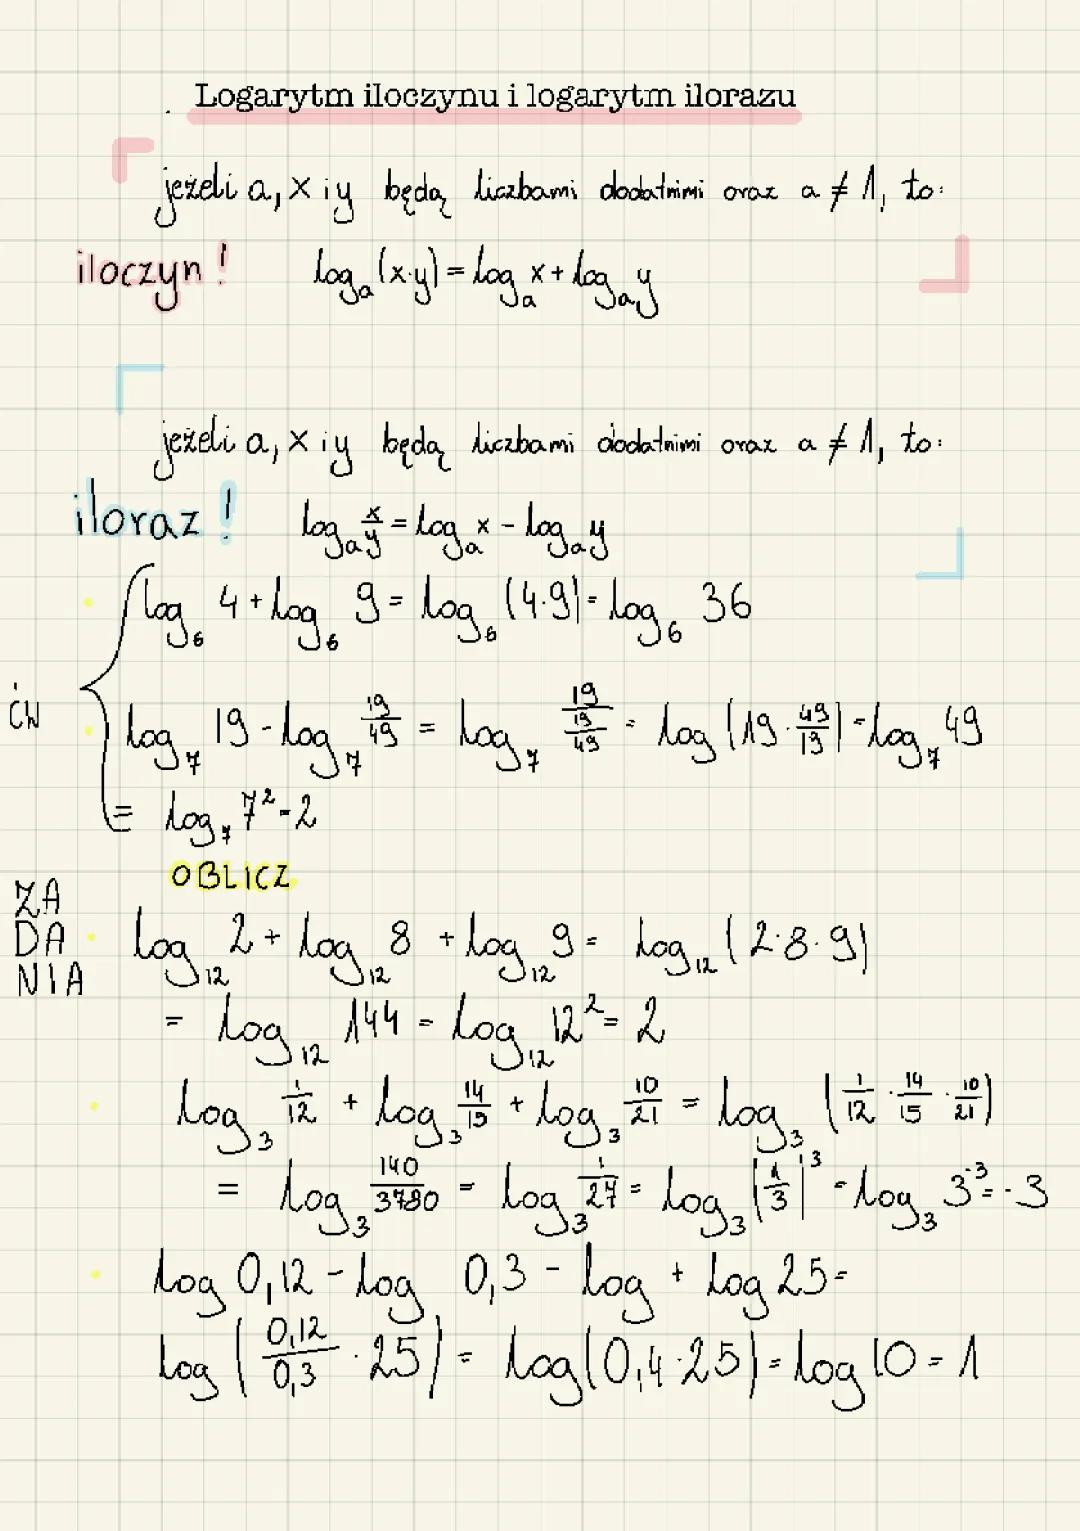 Logarytm iloczynu i logarytm ilorazu
jeżeli a, x i y będą liczbami dodatnimi oraz a ≠ 1, to:
iloczyn! logₐ(x·y) = logₐ x + logₐ y
jeżeli a, x i y będą liczbami dodatnimi oraz a ≠ 1, to:
iloraz! logₐ x/y = logₐ x - logₐ y
log₆ 4 + log₆ 9 = log₆ (4·9) = log₆ 36
ĆW
log₇ 19 - log₇ 19/49 = log₇ 19/(19/49) = log (19·49/19) = log₇ 49
= log₇ 7² = 2
OBLICZ
ZA
DA
NIA
log₁₂ 2 + log₁₂ 8 + log₁₂ 9 = log₁₂ (2·8·9)
= log₁₂ 144 = log₁₂ 12² = 2
log₃ 1/12 + log₃ 14/15 + log₃ 10/21 = log₃ (1/12 · 14/15 · 10/21)
= log₃ 140/3780 = log₃ 1/27 = log₃ (1/3)³ = log₃ 3⁻³ = -3
log 0,12 - log 0,3 - log + log 25 =
log (0,12/0,3 · 25) = log(0,4·25) = log 10 = 1